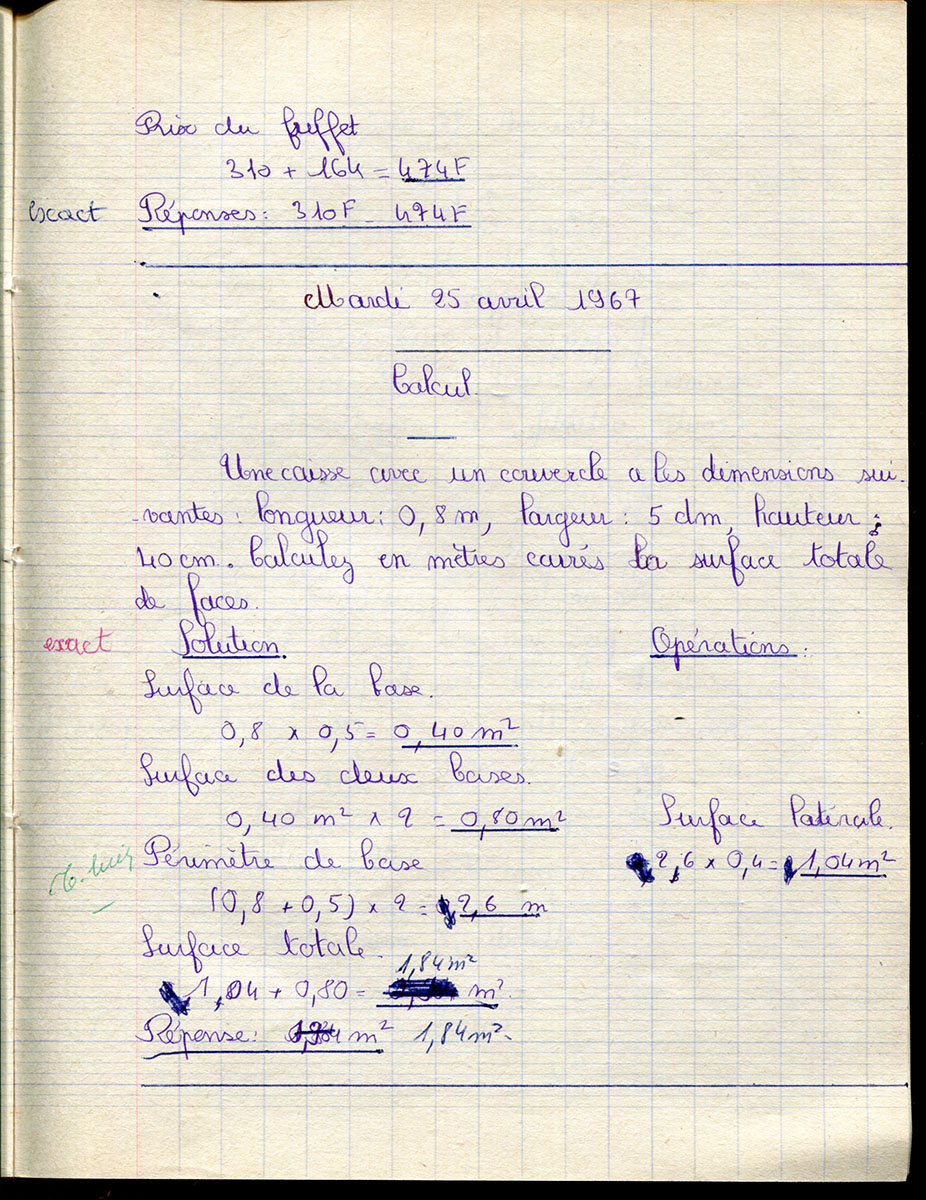 Prix du buffet
310 + 164 = 474F
exact Réponses: 310F - 474F
Mardi 25 avril 1967
Calcul.
Une caisse avec un couvercle a les dimensions sui-
-vantes: longueur: 0,8 m, largeur: 5 dm, hauteur:
40 cm. Calculez en mètres carrés la surface totale
de faces.
exact Solution. Opérations:
Surface de la base.
0,8 x 0,5 = 0,40 m²
Surface des deux bases.
0,40 m² x 2 = 0,80 m² Surface latérale.
Périmètre de base 2,6 x 0,4 = 1,04 m²
(0,8 + 0,5) x 2 = 2,6 m
Surface totale.
1,84 m²
1,04 + 0,80 = m².
Réponse: m² 1,84 m².